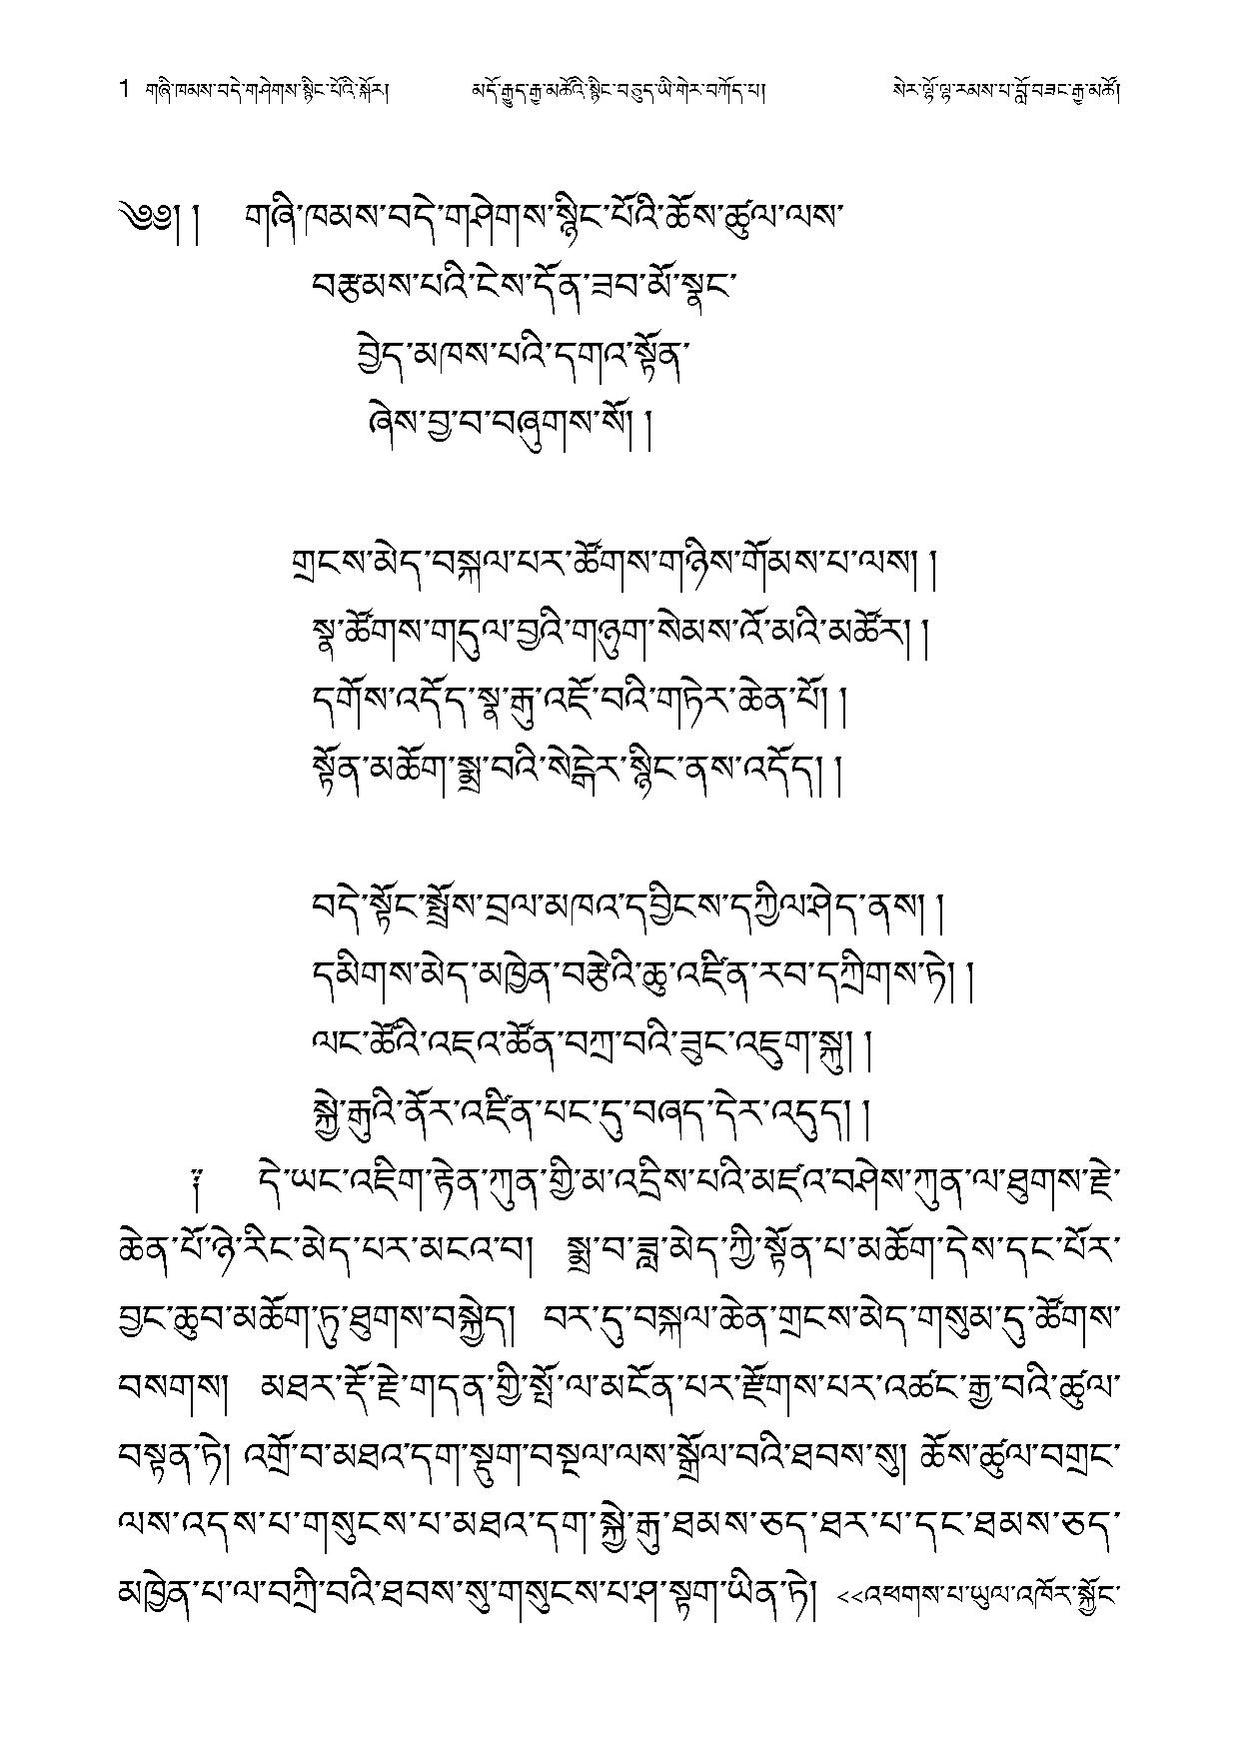 1 གཞི་ཁམས་བདེ་གཤེགས་སྙིང་པོའི་སྐོར། མདོ་རྒྱུད་རྒྱ་མཚོའི་སྙིང་བཅུད་ཡི་གེར་བཀོད་པ། སེར་ལྷོ་ལྷ་རམས་པ་བློ་བཟང་རྒྱ་མཚོ།
༄༅། ། གཞི་ཁམས་བདེ་གཤེགས་སྙིང་པོའི་ཆོས་ཚུལ་ལས་
བརྩམས་པའི་ངེས་དོན་ཟབ་མོ་སྣང་
བྱེད་མཁས་པའི་དགའ་སྟོན་
ཞེས་བྱ་བ་བཞུགས་སོ། །
གྲངས་མེད་བསྐལ་པར་ཚོགས་གཉིས་གོམས་པ་ལས། །
སྣ་ཚོགས་གདུལ་བྱའི་གཉུག་སེམས་འོ་མའི་མཚོར། །
དགོས་འདོད་སྣ་རྒུ་འཇོ་བའི་གཏེར་ཆེན་པོ། །
སྟོན་མཆོག་སྨྲ་བའི་སེངྒེར་སྙིང་ནས་འདོད། །
བདེ་སྟོང་སྤྲོས་བྲལ་མཁའ་དབྱིངས་དཀྱིལ་ཤེད་ནས། །
དམིགས་མེད་མཁྱེན་བརྩེའི་ཆུ་འཛིན་རབ་དཀྲིགས་ཏེ། །
ལང་ཚོའི་འཇའ་ཚོན་བཀྲ་བའི་ཟུང་འཇུག་སྐུ། །
སྐྱེ་རྒུའི་ནོར་འཛིན་པང་དུ་བཞད་དེར་འདུད། །
༈ དེ་ཡང་འཇིག་རྟེན་ཀུན་གྱི་མ་འདྲིས་པའི་མཛའ་བཤེས་ཀུན་ལ་ཐུགས་རྗེ་
ཆེན་པོ་ཉེ་རིང་མེད་པར་མངའ་བ། སྨྲ་བ་ཟླ་མེད་ཀྱི་སྟོན་པ་མཆོག་དེས་དང་པོར་
བྱང་ཆུབ་མཆོག་ཏུ་ཐུགས་བསྐྱེད། བར་དུ་བསྐལ་ཆེན་གྲངས་མེད་གསུམ་དུ་ཚོགས་
བསགས། མཐར་རྡོ་རྗེ་གདན་གྱི་སྤོ་ལ་མངོན་པར་རྫོགས་པར་འཚང་རྒྱ་བའི་ཚུལ་
བསྟན་ཏེ། འགྲོ་བ་མཐའ་དག་སྡུག་བསྔལ་ལས་སྒྲོལ་བའི་ཐབས་སུ། ཆོས་ཚུལ་བགྲང་
ལས་འདས་པ་གསུངས་པ་མཐའ་དག་སྐྱེ་རྒུ་ཐམས་ཅད་ཐར་པ་དང་ཐམས་ཅད་
མཁྱེན་པ་ལ་བཀྲི་བའི་ཐབས་སུ་གསུངས་པ་ཤ་སྟག་ཡིན་ཏེ། <<འཕགས་པ་ཡུལ་འཁོར་སྐྱོང་